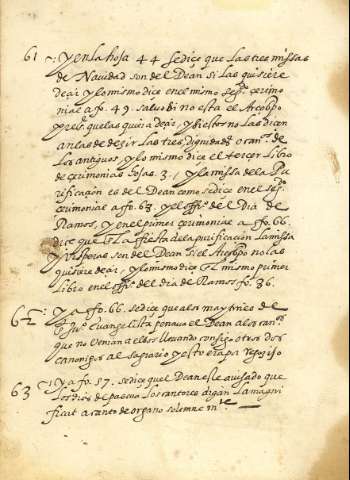 61 ~: Y en la hoja 44 se dice que las tres missas
de Navidad son del Dean si las quisiere
deçir y lo mismo dice en el mismo seg.º çerimo
niae a fo. 49. salvo si no esta el Arçobpo
que las quiera deçir, y si estos no las dicen
an las de dezir las tres, dignidades o can.ºs de
los antiguos, y lo mismo dice el terçer libro
de çerimonias fojas. 3., y la missa de la Pu
rificaçion es del Dean como se dice en el seg.º
çerimoniae a ffo. 63. y el offi.º del Dia de
Ramos, y en el primer çerimoniae a ffo. 66.
dice que la fiesta de la purificaçion la missa
y visporas son del Dean si el Arçobpo no las
quisiere deçir, y lo mismo dice mismo primer
libro en el off.º del dia de Ramos ffo. 36.
62 ~: Y a ffo. 66. se dice que a los maytines de
Ju.º Evangelista penava el Dean a los can.ºs
que no venian a ellos llevando consigo otros dos
canonigos al sagrario y esto estapa
63 ~: Y a fo. 57. se dice que el Dean este avisado que
los dias de pascua los cantores digan la magni
ficat a canto de organo solemne m.te